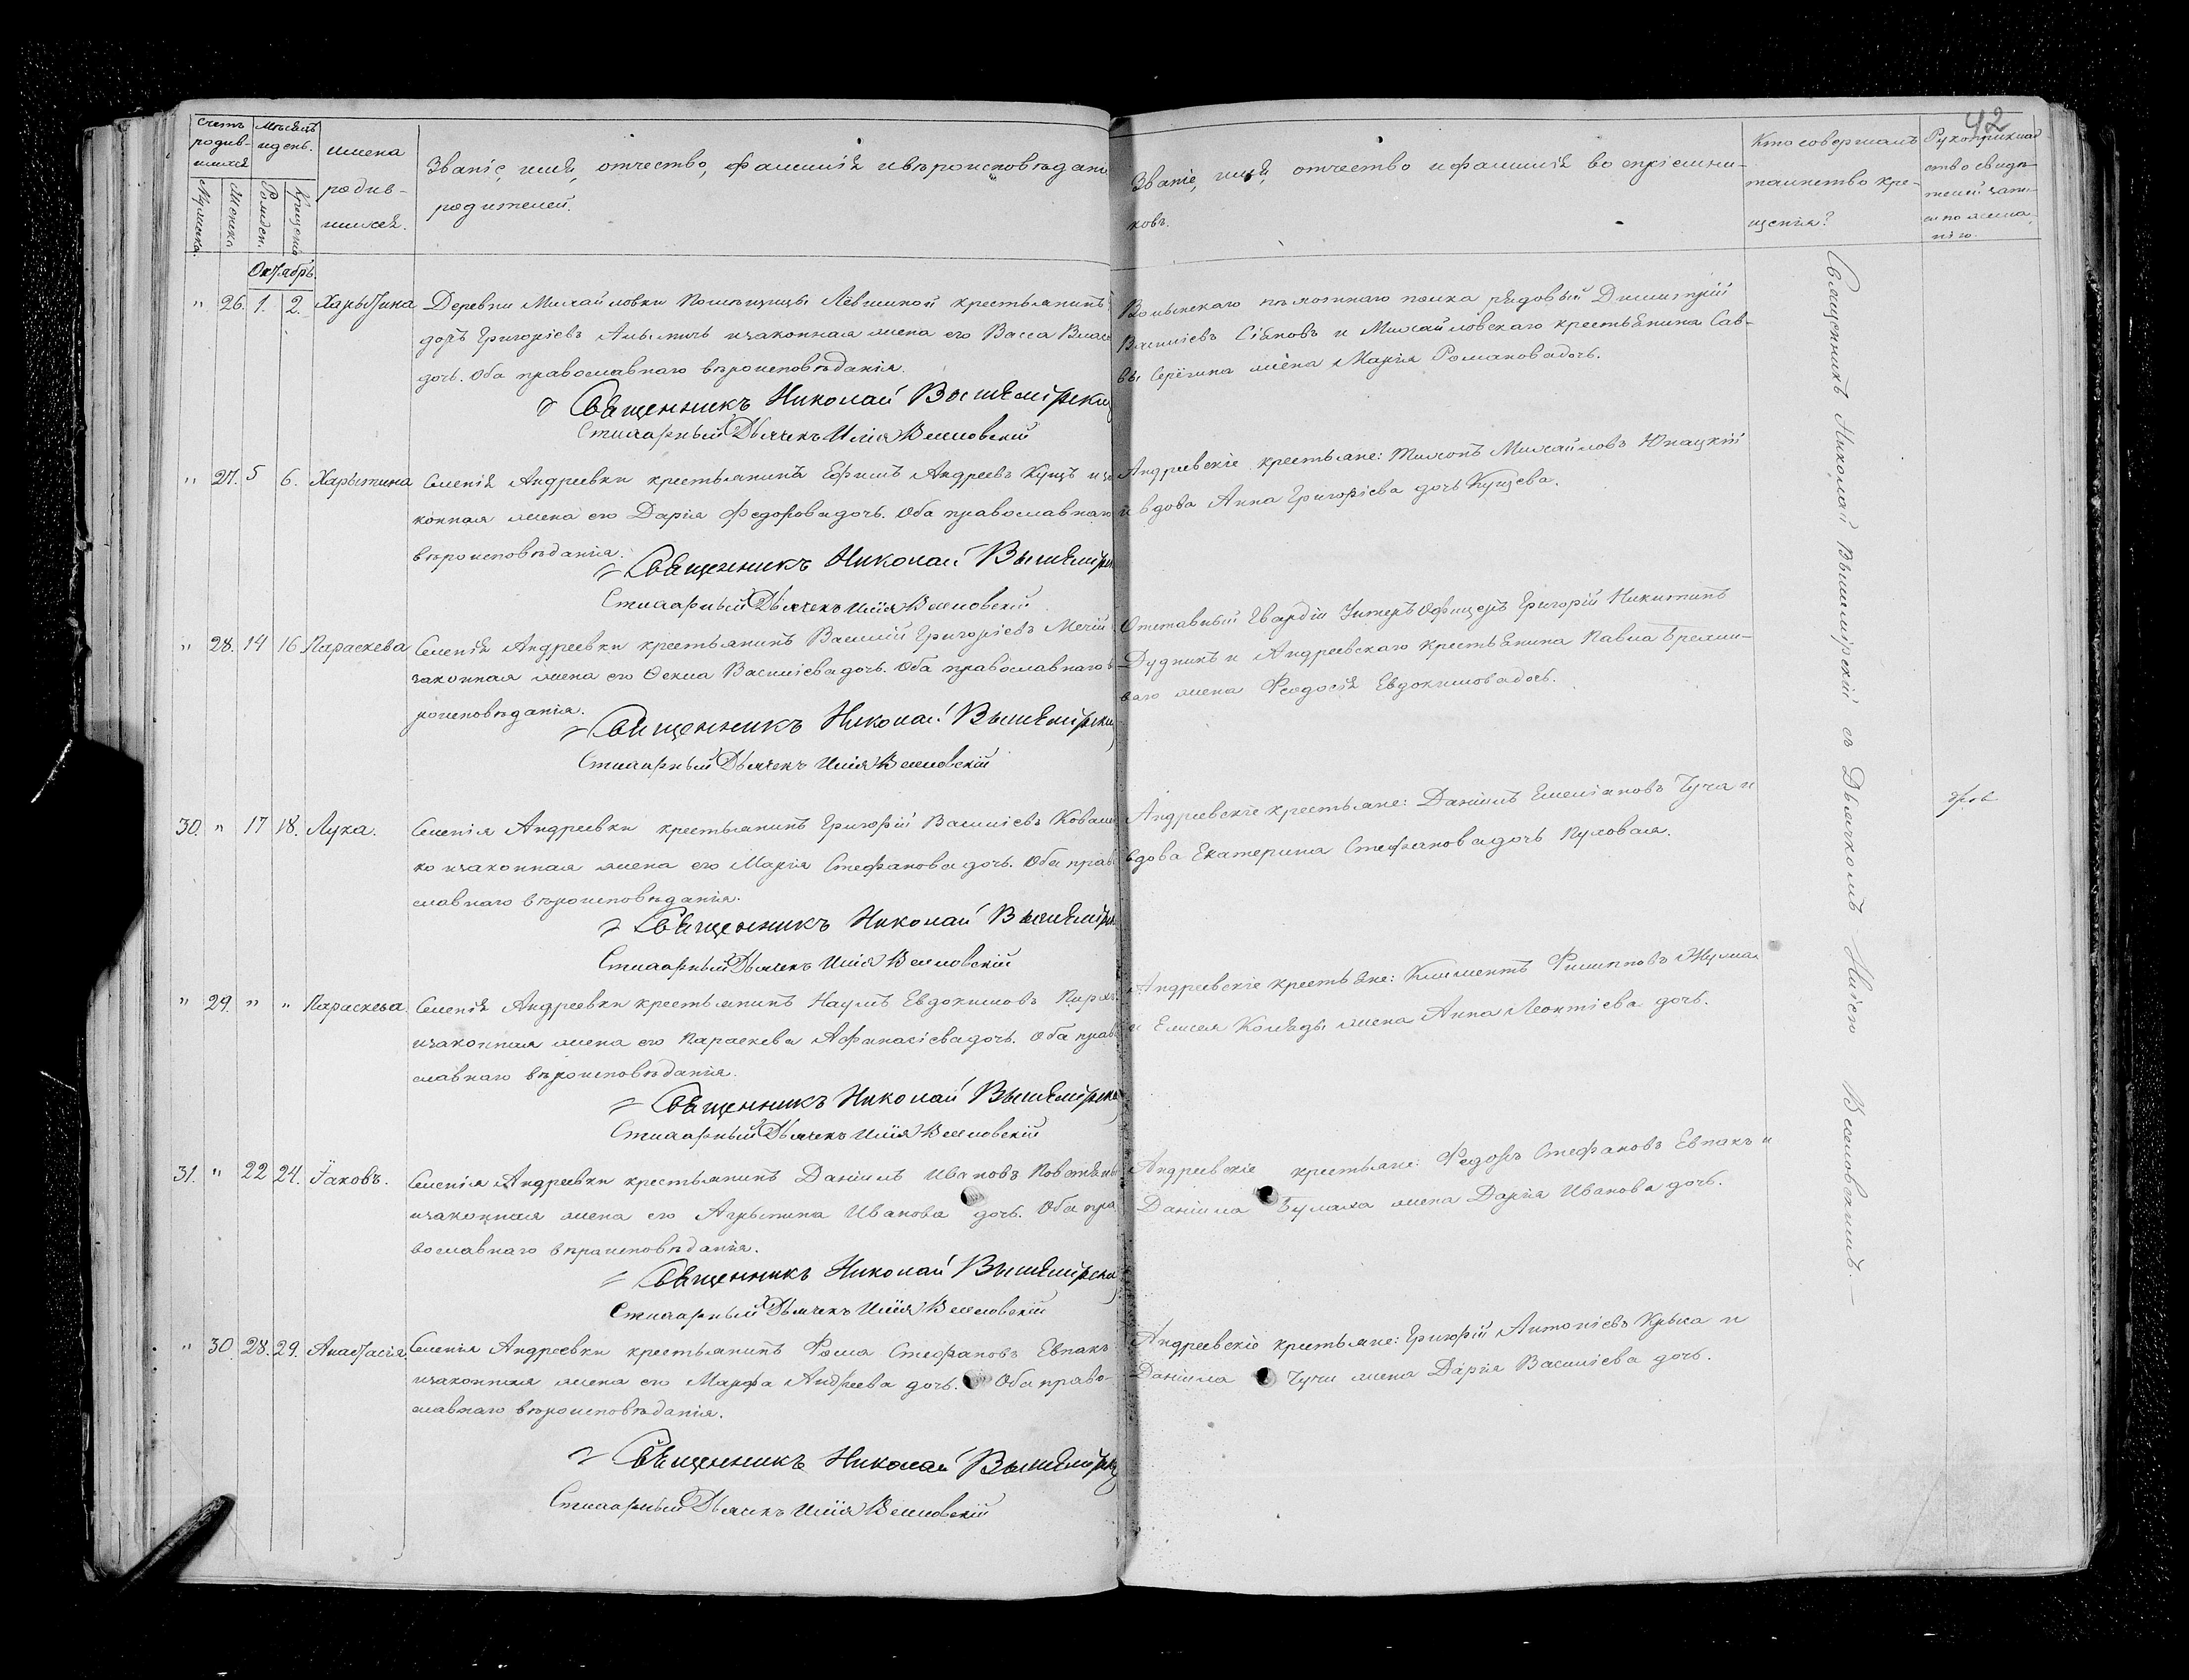 42
Счетъ родив-
шихся
Мѣсяцъ
и день.
Имена
родив-
шихся.
Званіе, имя, отчество, фамилія и вѣроисповѣданіе
родителей.
Званіе, имя, отчество и фамилія воспріемни-
ковъ.
Кто совершалъ
таинство кре-
щенія?
Рукоприклад-
ство свидѣ-
телей записи
по желанію.
Мужеска.
Женска.
Рожден.
Крещенія
Октябрь.
" 26. 1. 2. Харытина
Деревни Михайловки Помѣщицы Лёвшиной крестьянинъ
Григоріевъ и законная жена его Васса
дочь. Оба православнаго вѣроисповѣданія.
Священникъ Николай Вышемірскій
Стихарный Дьячекъ Илія Веселовскій
Волынскаго пѣхотнаго полка рядовый Димитрій
Василіевъ и Михайловскаго крестьянина Сав-
вы Серёгина жена Марія Романова дочь.
" 27. 5 6. Харытина
Селенія Андреевки крестьянинъ Ефимъ Андреевъ Кущъ и за-
конная жена его Дарія Федорова дочь. Оба православнаго
вѣроисповѣданія.
Священникъ Николай Вышемірскій
Стихарный Дьячекъ Илія Веселовскій
Андреевскіе крестьяне: Тихонъ Михайловъ Юнацкій
и вдова Анна Григоріева дочь Кущева.
" 28. 14 16 Параскева
Селенія Андреевки крестьянинъ Василій Григоріевъ
законная жена его Ѳекла Василіева дочь. Оба православнаго вѣ-
роисповѣданія.
Священникъ Николай Вышемірскій
Стихарный Дьячекъ Илія Веселовскій
Отставный Гвардіи Унтеръ Офицеръ Григорій Никитинъ
Дудникъ и Андреевскаго крестьянина Павла
жена Феодосія Евдокимова дочь.
30. " 17 18. Лука.
Селенія Андреевки крестьянинъ Григорій Василіевъ Ковален-
ко и законная жена его Марія Стефанова дочь. Оба право-
славнаго вѣроисповѣданія.
Священникъ Николай Вышемірскій
Стихарный Дьячекъ Илія Веселовскій
Андреевскіе крестьяне: Даніилъ Емеліановъ Чуча и
вдова Екатерина Стефанова дочь
" 29. " " Параскева
Селенія Андреевки крестьянинъ Наумъ Евдокимовъ
и законная жена его Параскева Афанасіева дочь. Оба право-
славнаго вѣроисповѣданія.
Священникъ Николай Вышемірскій
Стихарный Дьячекъ Илія Веселовскій
Андреевскіе крестьяне: Климентъ Филипповъ
и Елисея Коляды жена Анна Леонтіева дочь.
31. " 22 24. Іаковъ.
Селенія Андреевки крестьянинъ Даніилъ Ивановъ
и законная жена его Агрыпина Иванова дочь. Оба пра-
вославнаго вѣроисповѣданія.
Священникъ Николай Вышемірскій
Стихарный Дьячекъ Илія Веселовскій
Андреевскіе крестьяне: Федоръ Стефановъ Евпакъ и
Даніила Булаха жена Дарія Иванова дочь.
" 30. 28. 29. Анастасія.
Селенія Андреевки крестьянинъ Фома Стефановъ Евпакъ
и законная жена его Марфа Андреева дочь. Оба право-
славнаго вѣроисповѣданія.
Священникъ Николай Вышемірскій
Стихарный Дьячекъ Илія Веселовскій
Андреевскіе крестьяне: Григорій Антоніевъ Крыса и
Даніила Чучи жена Дарія Василіева дочь.
Священникъ Николай Вышемірскій съ Дьячкомъ Иліею Веселовскимъ.